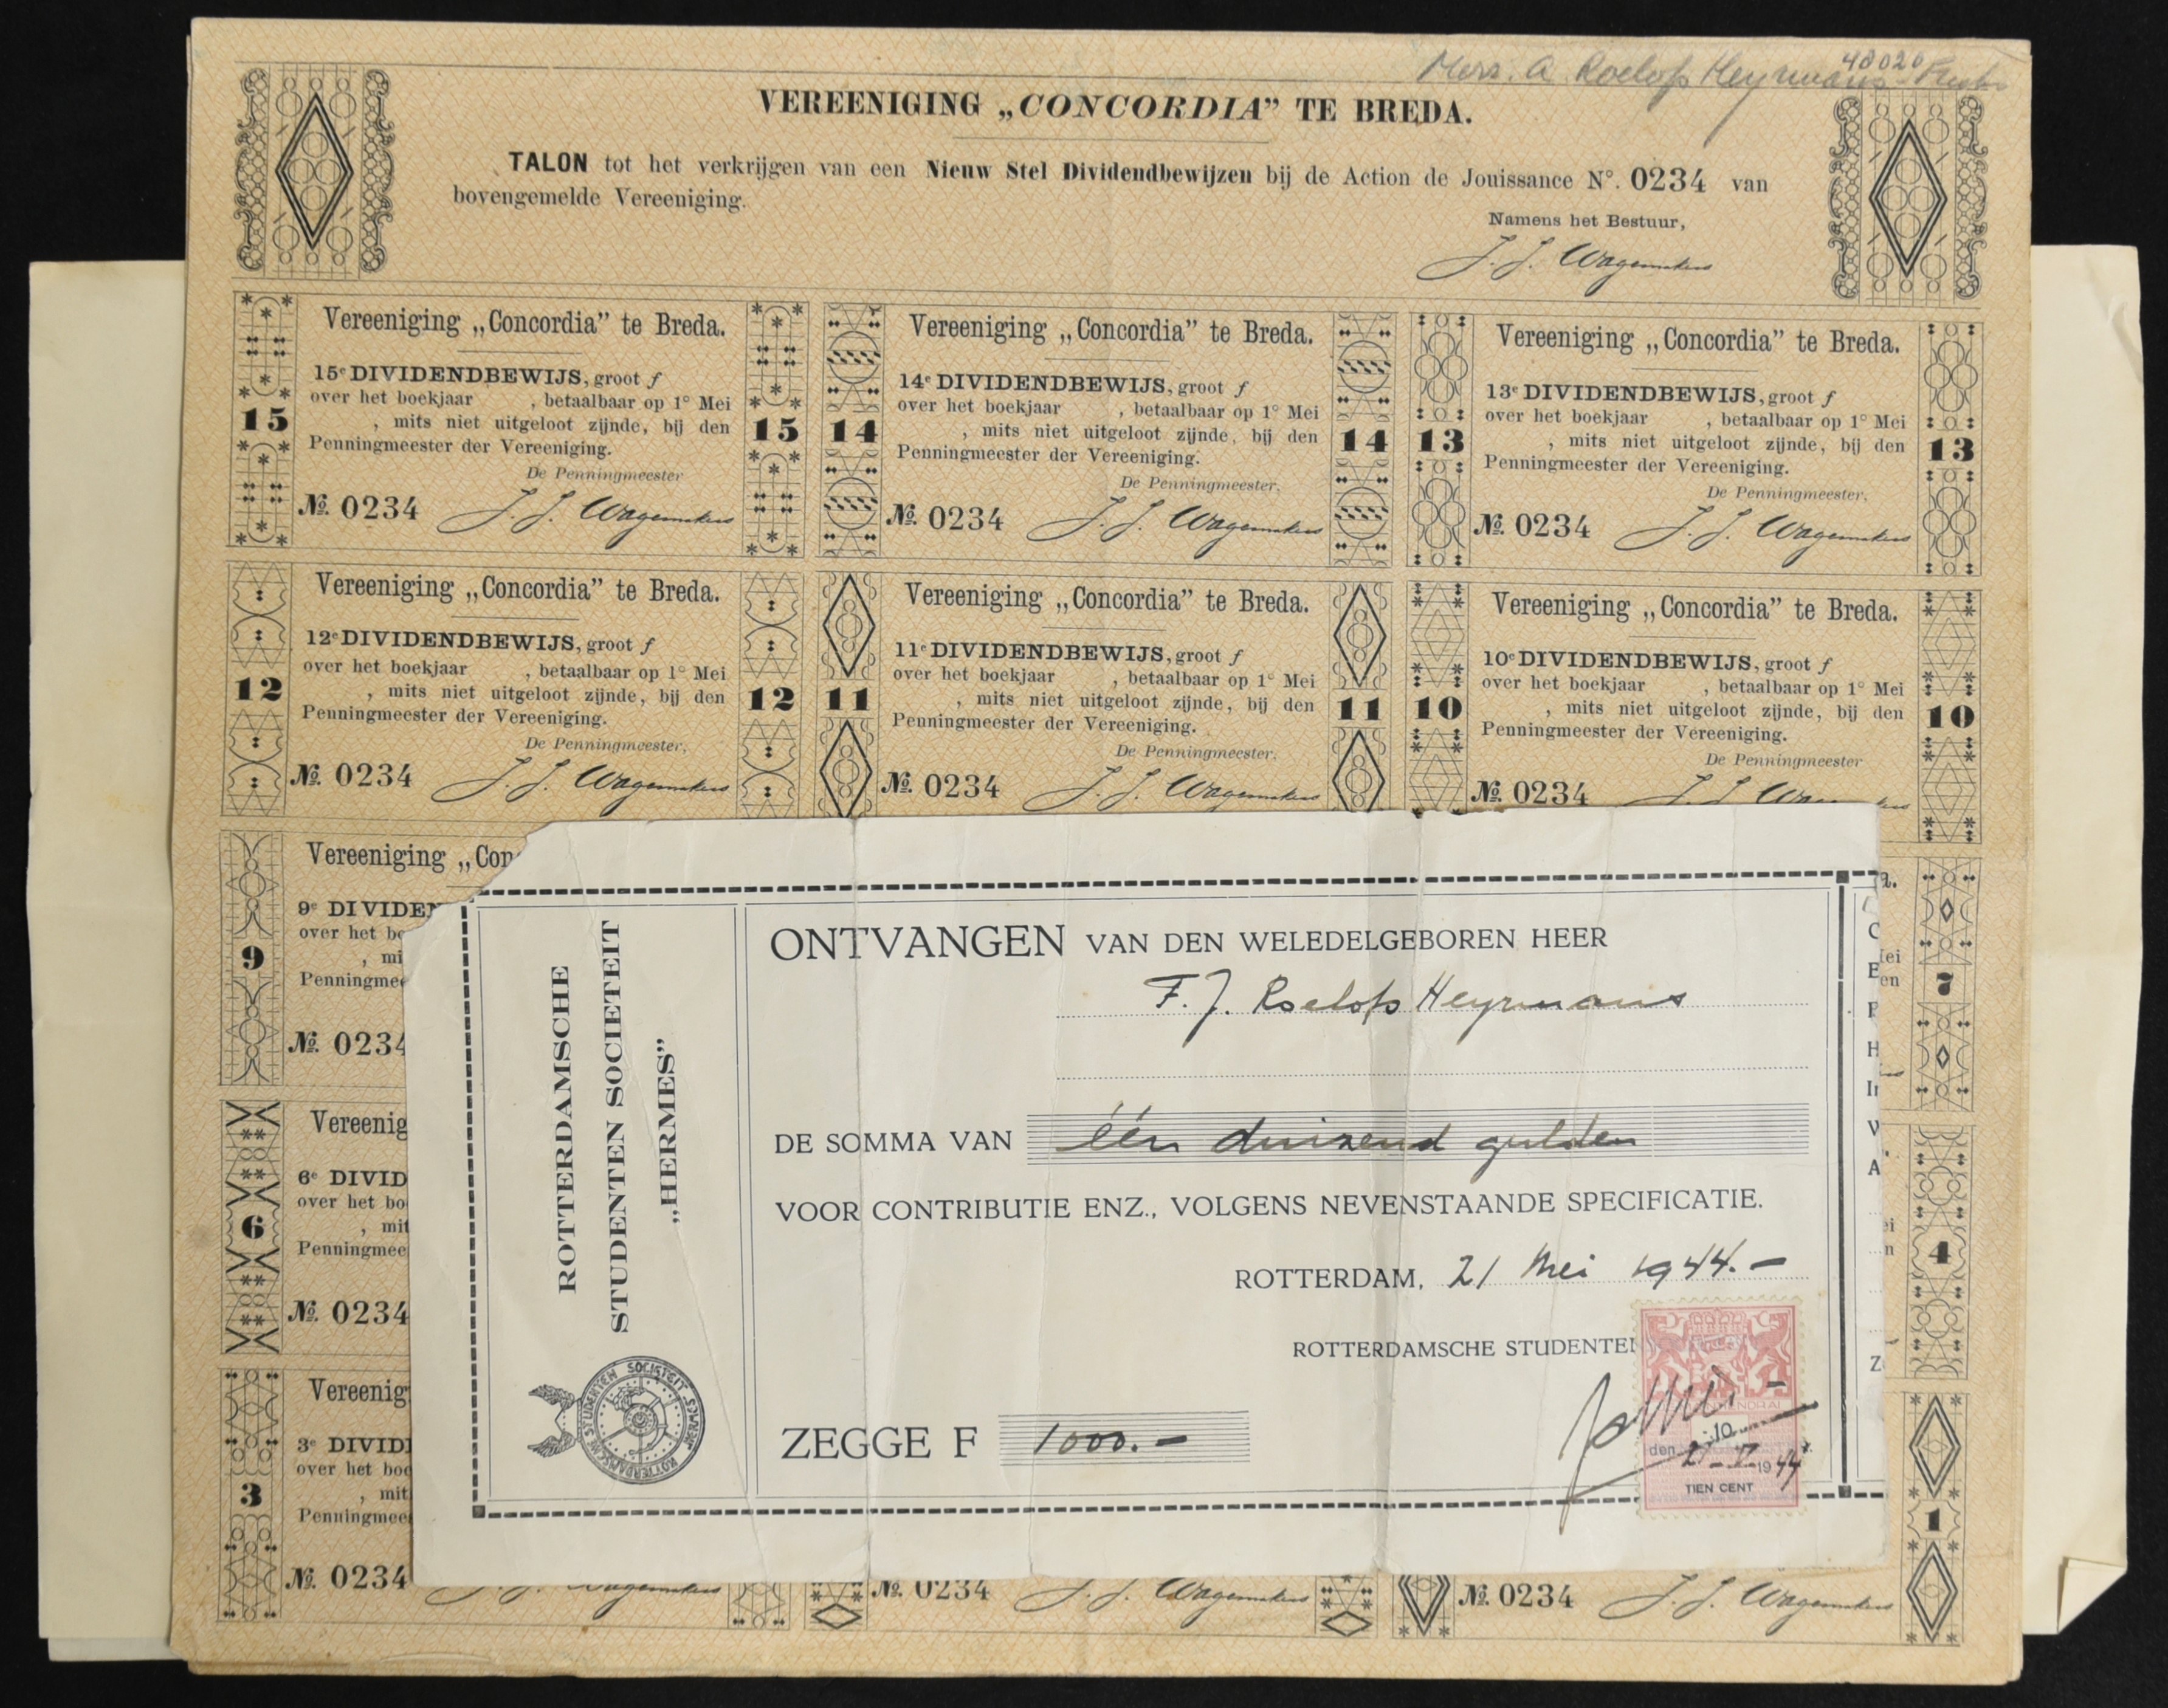 48020
Mevr. A. Roelofs Heymans
VEREENIGING „CONCORDIA” TE BREDA.
TALON tot het verkrijgen van een Nieuw Stel Dividendbewijzen bij de Action de Jouissance N°. 0234 van
bovengemelde Vereeniging.
Namens het Bestuur,
J. J. Wagemakers
Vereeniging „Concordia” te Breda.
15e DIVIDENDBEWIJS, groot f
over het boekjaar , betaalbaar op 1° Mei
15 , mits niet uitgeloot zijnde, bij den 15
Penningmeester der Vereeniging.
De Penningmeester
№ 0234 J. J. Wagemakers
Vereeniging „Concordia” te Breda.
14e DIVIDENDBEWIJS, groot f
over het boekjaar , betaalbaar op 1° Mei
14 , mits niet uitgeloot zijnde, bij den 14
Penningmeester der Vereeniging.
De Penningmeester,
№ 0234 J. J. Wagemakers
Vereeniging „Concordia” te Breda.
13e DIVIDENDBEWIJS, groot f
over het boekjaar , betaalbaar op 1° Mei
13 , mits niet uitgeloot zijnde, bij den 13
Penningmeester der Vereeniging.
De Penningmeester,
№ 0234 J. J. Wagemakers
Vereeniging „Concordia” te Breda.
12e DIVIDENDBEWIJS, groot f
over het boekjaar , betaalbaar op 1° Mei
12 , mits niet uitgeloot zijnde, bij den 12
Penningmeester der Vereeniging.
De Penningmeester,
№ 0234 J. J. Wagemakers
Vereeniging „Concordia” te Breda.
11e DIVIDENDBEWIJS, groot f
over het boekjaar , betaalbaar op 1° Mei
11 , mits niet uitgeloot zijnde, bij den 11
Penningmeester der Vereeniging.
De Penningmeester.
№ 0234 J. J. Wagemakers
Vereeniging „Concordia” te Breda.
10e DIVIDENDBEWIJS, groot f
over het boekjaar , betaalbaar op 1° Mei
10 , mits niet uitgeloot zijnde, bij den 10
Penningmeester der Vereeniging.
De Penningmeester
№ 0234
Vereeniging „Con
9e DIVIDEN
over het bo
9 , mi
Penningmee
№ 0234
7
Vereenig
6e DIVID
over het bo
6 , mit
Penningmee
№ 0234
4
Vereenig
3e DIVIDI
over het boe
3 , mit
Penningmee
№ 0234 J. J. Wagemakers
№ 0234 J. J. Wagemakers
1
№ 0234 J. J. Wagemakers
ROTTERDAMSCHE
STUDENTEN SOCIETEIT
„HERMES”
ROTTERDAMSCHE STUDENTEN SOCIETEIT HERMES
ONTVANGEN VAN DEN WELEDELGEBOREN HEER
F. J. Roelofs Heymans
DE SOMMA VAN één duizend gulden
VOOR CONTRIBUTIE ENZ., VOLGENS NEVENSTAANDE SPECIFICATIE.
ROTTERDAM, 21 Mei 1944.-
ROTTERDAMSCHE STUDENTEN
ZEGGE F 1000.-
10
den 21-V-1944
TIEN CENT